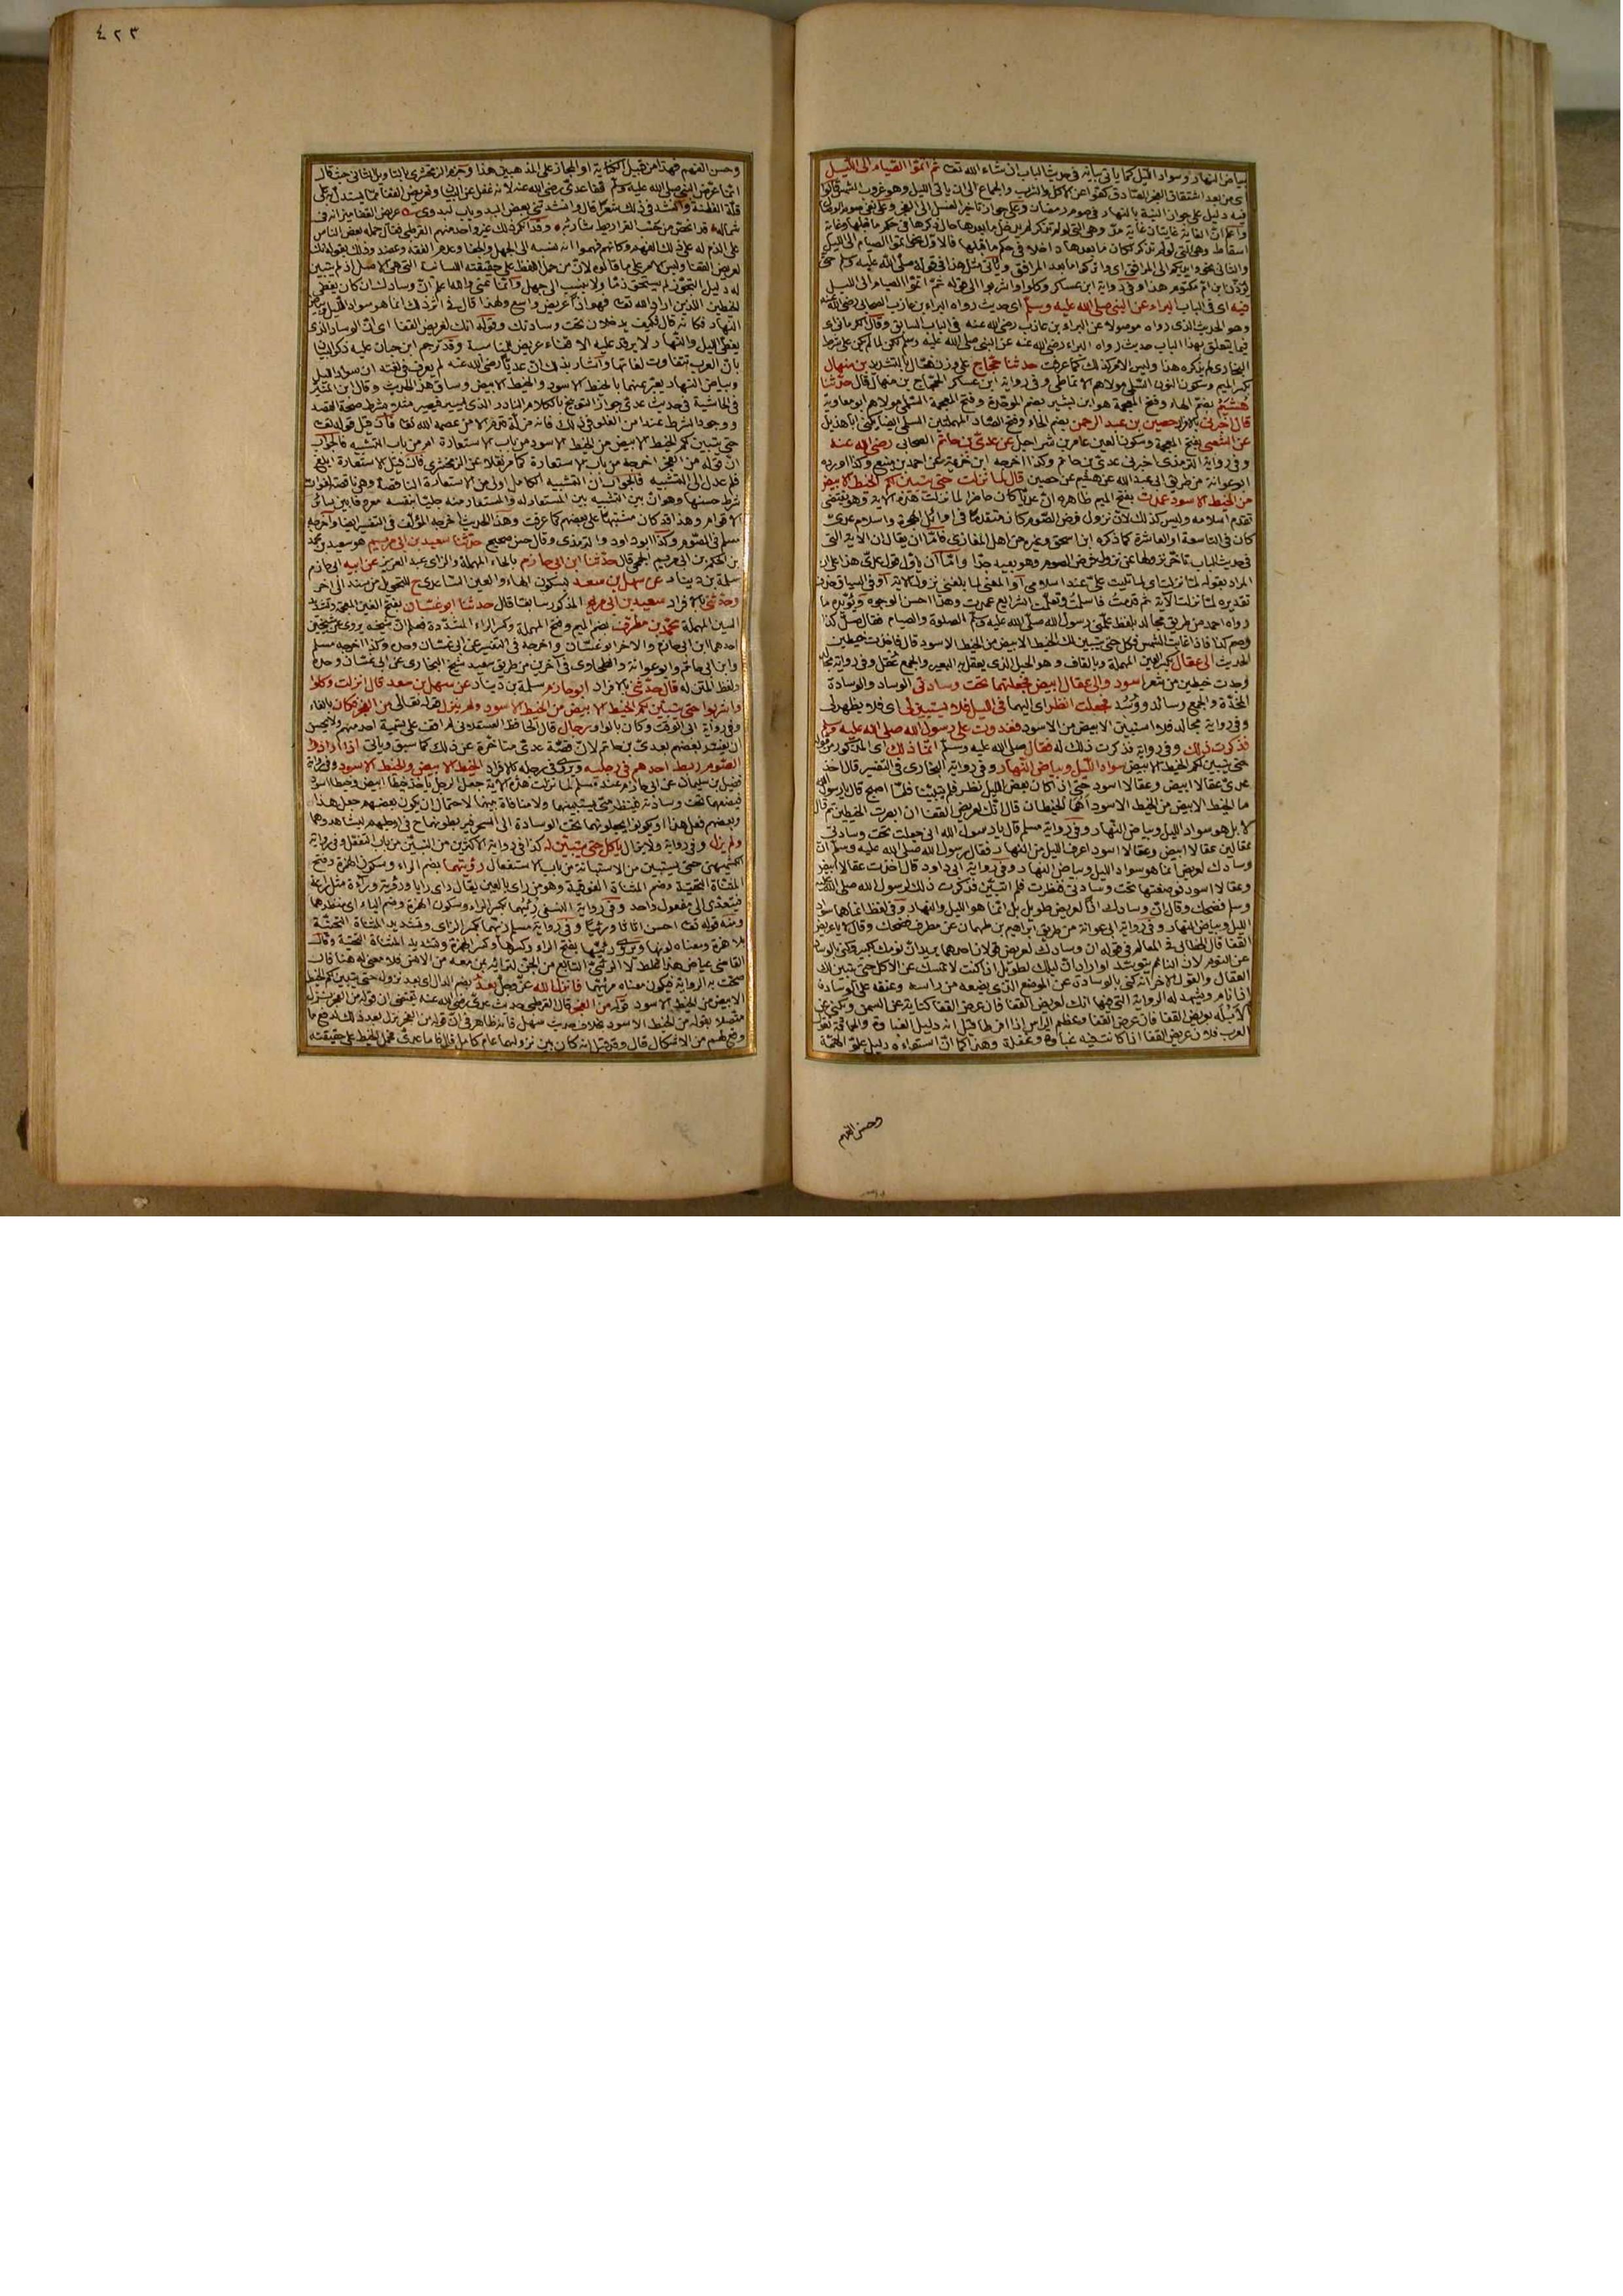 ٤٢٣
بياض النهار وسواد الليل كما يأتي بيانه في حديث الباب ان شاء الله تعا ثم اتموا الصيام الى الليل
اي من بعد اشتقاق الفجر الصادق كفوا عن الاكل والشرب والجماع الى ان ياتي الليل وهو غروب الشمس قالوا
فيه دليل على جواز النية بالنهار في صوم رمضان وعلى جواز تأخير الغسل الى الفجر وعلى نفي صوم الوصال
يؤذن ابن ام مكتوم هذا وفي رواية ابن عساكر وكلوا واشربوا الى قوله ثم اتموا الصيام الى الليل
فيه اي في الباب البراء عن النبي صلى الله عليه وسلم اي حديث رواه البراء بن عازب الصحابي رضي الله عنه
وهو الحديث الذي رواه موصولا عن البراء بن عازب رضي الله عنه في الباب السابق
البخاري لم يذكره هنا وليس الامر كذلك كما عرفت حدثنا حجاج على وزن فعال بالتشديد بن منهال
كبر الميم وسكون النون السلمي مولاهم الانماطي وفي رواية ابن عساكر الحجاج بن منهال قال حدثنا
هشيم بضم الهاء وفتح المعجمة هو ابن بشير بضم الموحدة وفتح المعجمة السلمي مولاهم ابو معاوية
قال اخبرني بالافراد حصين بن عبد الرحمن بضم الحاء وفتح الصاد المهملتين السلمي ايضا يكنى ابا هذيل
عن الشعبي بفتح المعجمة وسكون العين عامر بن شراحيل عن عدي بن حاتم الصحابي رضي الله عنه
وفي رواية الترمذي اخبرني عدي بن حاتم وكذا اخرجه ابن خزيمة عن احمد بن منيع وكذا اورده
ابو عوانة من طريق ابي عبيد الله عن هشيم عن حصين قال لما نزلت حتى يتبين لكم الخيط الابيض
من الخيط الاسود عمدت بفتح الميم ظاهره ان عديا كان حاضرا لما نزلت هذه الاية وهو يقتضي
تقدم اسلامه وليس كذلك لان نزول فرض الصوم كان متقدما في اوائل الهجرة واسلام عدي
كان في التاسعة او العاشرة كما ذكره ابن اسحق وغيره من اهل المغازي فاما ان يقال ان الاية التي
في حديث الباب تأخر نزولها عن نزول فرض الصوم وهو بعيد جدا واما ان يأول قول عدي هذا على ان
المراد بقوله لما نزلت اي لما تليت علي عند اسلامي او المعنى لما بلغني نزول الاية او في السياق حذف
تقديره لما نزلت الاية ثم قدمت فاسلمت وتعلمت الشرايع عمدت وهذا احسن الوجوه ويؤيده ما
رواه احمد من طريق مجالد بلفظ علمني رسول الله صلى الله عليه وسلم الصلوة والصيام فقال صل كذا
وصم كذا فاذا غابت الشمس فكل حتى يتبين لك الخيط الابيض من الخيط الاسود قال فاخذت خيطين
الحديث الى عقال بكسر العين المهملة وبالقاف وهو الحبل الذي يعقل به البعير والجمع عقل وفي رواية مجالد
فاخذت خيطين من شعر اسود والى عقال ابيض فجعلتهما تحت وسادتي الوساد والوسادة
المخدة والجمع وسائد ووسد فجعلت انظر اي اليهما في الليل فلا يستبين لي اي فلا يظهر لي
وفي رواية مجالد فلا استبين الابيض من الاسود فغدوت على رسول الله صلى الله عليه وسلم
فذكرت ذلك وفي رواية فذكرت ذلك له فقال صلى الله عليه وسلم انما ذلك اي المذكور من قوله
حتى يتبين لكم الخيط الابيض سواد الليل وبياض النهار وفي رواية البخاري في التفسير قال اخذ
عدي عقالا ابيض وعقالا اسود حتى اذا كان بعض الليل نظر فلم يتبينا فلما اصبح قال يا رسول الله
ما الخيط الابيض من الخيط الاسود اهما الخيطان قال انك لعريض القفا ان ابصرت الخيطين ثم قال
لا بل هو سواد الليل وبياض النهار وفي رواية مسلم قال يا رسول الله اني جعلت تحت وسادتي
عقالين عقالا ابيض وعقالا اسود اعرف الليل من النهار فقال رسول الله صلى الله عليه وسلم ان
وسادك لعريض انما هو سواد الليل وبياض النهار وفي رواية ابي داود قال اخذت عقالا ابيض
وعقالا اسود فوضعتهما تحت وسادتي فنظرت فلم اتبين فذكرت ذلك لرسول الله صلى الله عليه
وسلم فضحك وقال ان وسادك اذا لعريض طويل بل انما هو الليل والنهار وفي لفظ انما هو سواد
الليل وبياض النهار وفي رواية ابي عوانة من طريق ابراهيم بن طهمان عن مطرف فضحك وقال لا يا عريض
القفا قال الخطابي في المعالم في قوله ان وسادك لعريض قولان احدهما يريد ان نومك لكثير فكنى بالوساد
عن النوم لان النائم يتوسد او اراد ان ليلك لطويل اذا كنت لا تمسك عن الاكل حتى يتبين لك
العقال والقول الاخر انه كنى بالوسادة عن الموضع الذي يضعه من راسه وعنقه على الوسادة
اذا نام ويشهد له الرواية التي فيها انك لعريض القفا فان عرض القفا كناية عن السمن
العرب فلان عريض القفا اذا كانت فيه غباوة وغفلة
وحسن الفهم
وحسن الفهم فهذا من قبيل الكناية او المجاز على المذهبين هذا وجزم الزمخشري بالتأويل الثاني حيث قال
انما عرض النبي صلى الله عليه وسلم قفا عدي رضي الله عنه لانه غفل عن البيان وتعريض القفا مما يستدل به على
قلة الفطنة وانشد في ذلك شعرا
لعريض القفا وليس الامر على ما قالوه لان من حمل اللفظ على حقيقته اللسانية التي هي الاصل اذ لم يتبين
له دليل التجوز لم يستحق ذما ولا ينسب الى جهل وانما عنى والله اعلم ان وسادك ان كان يغطي
الخيطين الذين اراد الله تعا فهو اذا عريض واسع ولهذا قال في اثر ذلك انما هو سواد الليل وبياض
النهار فكانه قال فكيف يدخلان تحت وسادتك وقوله انك لعريض القفا اي ان الوساد الذي
يغطي الليل والنهار لا يرقد عليه الا قفاء عريض للمناسبة وقد ترجم ابن حبان عليه ذكر البيان
بان العرب تتفاوت لغاتها واشار بذلك ان عديا رضي الله عنه لم يعرف في لغته ان سواد الليل
وبياض النهار يعبر عنهما بالخيط الاسود والخيط الابيض وساق هذا الحديث وقال ابن المنير
في الحاشية في حديث عدي جواز التوبيخ بالكلام النادر الذي يسير فيصير مثلا بشرط صحة القصد
ووجود الشرط عند امن الغلو في ذلك فانه مزلة القدم الا من عصمه الله تعا فان قيل قوله تعا
حتى يتبين لكم الخيط الابيض من الخيط الاسود من باب الاستعارة ام من باب التشبيه فالجواب
ان قوله من الفجر اخرجه من باب الاستعارة كما مر نقلا عن الزمخشري فان قيل الاستعارة ابلغ
فلم عدل الى التشبيه فالجواب ان التشبيه الكامل اولى من الاستعارة الناقصة وهي ناقصة لفوات
شرط حسنها وهو ان بين التشبيه بين المستعار له والمستعار منه جليا بنفسه معروفا بين سائر
الاقوام وهذا قد كان مشتبها على بعضهم كما عرفت وهذا الحديث اخرجه المؤلف في التفسير ايضا واخرجه
مسلم في الصوم وكذا ابو داود والترمذي وقال حسن صحيح حدثنا سعيد بن ابي مريم هو سعيد بن محمد
بن الحكم بن ابي مريم الجمحي قال حدثنا ابن ابي حازم بالحاء المهملة والزاي عبد العزيز عن ابيه ابي حازم
سلمة بن دينار عن سهل بن سعد بسكون الهاء والعين الساعدي ح للتحويل من سند الى اخر
وحدثني بالافراد سعيد بن ابي مريم المذكور سابقا قال حدثنا ابو غسان بفتح الغين المعجمة وتشديد
السين المهملة محمد بن مطرف بضم الميم وفتح المهملة وكسر الراء المشددة فعلم ان شيخه يروي عن شيخين
احدهما ابن ابي حازم والاخر ابو غسان واخرجه في التفسير عن ابي غسان وحده وكذا اخرجه مسلم
وابن ابي حاتم وابو عوانة والطحاوي في آخرين من طريق سعيد شيخ البخاري عن ابي غسان وحده
ولفظ المتن له قال حدثني بالافراد ابو حازم سلمة بن دينار عن سهل بن سعد قال انزلت وكلوا
واشربوا حتى يتبين لكم الخيط الابيض من الخيط الاسود ولم ينزل قوله تعالى من الفجر فكان بالفاء
وفي رواية ابي الوقت وكان بالواو رجال قال الحافظ العسقلاني لم اقف على تسمية احد منهم ولا يحسن
ان يفسر بعضهم بعدي بن حاتم لان قصة عدي متأخرة عن ذلك كما سبق ويأتي اذا ارادوا
الصوم ربط احدهم في رجليه ويروى في رجله بالافراد الخيط الابيض والخيط الاسود وفي رواية
فضيل بن سليمان عن ابي حازم عند مسلم لما نزلت هذه الاية جعل الرجل ياخذ خيطا ابيض وخيطا اسود
فيضعهما تحت وسادته فينظر متى يستبينهما ولا منافاة بينهما لاحتمال ان يكون بعضهم جعل هذا
وبعضهم فعل هذا او يكونوا يجعلونهما تحت الوسادة الى السحر فيربطونهما ح في ارجلهم ليشاهدوهما
ولم يزل وفي رواية ولا يزال ياكل حتى يتبين له كذا في رواية الاكثرين من التبين من باب التفعل وفي رواية
الكشميهني حتى يستبين من الاستبانة من باب الاستفعال رؤيتهما بضم الراء وسكون الهمزة وفتح
المثناة التحتية وضم المثناة الفوقية وهو من راى بالعين يقال راى رايا ورؤية وراءة مثل راعة
فيتعدى الى مفعول واحد وفي رواية النسفي رئيهما بكسر الراء وسكون الهمزة وضم الياء اي منظرهما
ومنه قوله تعا احسن اثاثا ورئيا وفي رواية مسلم زيهما بكسر الزاي وتشديد المثناة التحتية
بلا همزة ومعناه لونهما ويروى رئيهما بفتح الراء وكسرها وكسر الهمزة وتشديد المثناة التحتية وقال
القاضي عياض هذا غلط لان الرئي التابع من الجن
صحت به الرواية فيكون معناه مرئيهما فانزل الله عز وجل بعد بضم الدال اي بعد نزوله حتى يتبين لكم الخيط
الابيض من الخيط الاسود قوله من الفجر قال القرطبي حديث عدي رضي الله عنه يقتضي ان قوله من الفجر نزل
متصلا بقوله من الخيط الاسود بخلاف حديث سهل فانه ظاهر في ان قوله من الفجر نزل بعد ذلك لدفع ما
وقع لهم من الاشكال قال وقد قيل انه كان بين نزولهما عام كامل قال فاما عدي فحمل الخيط على حقيقته